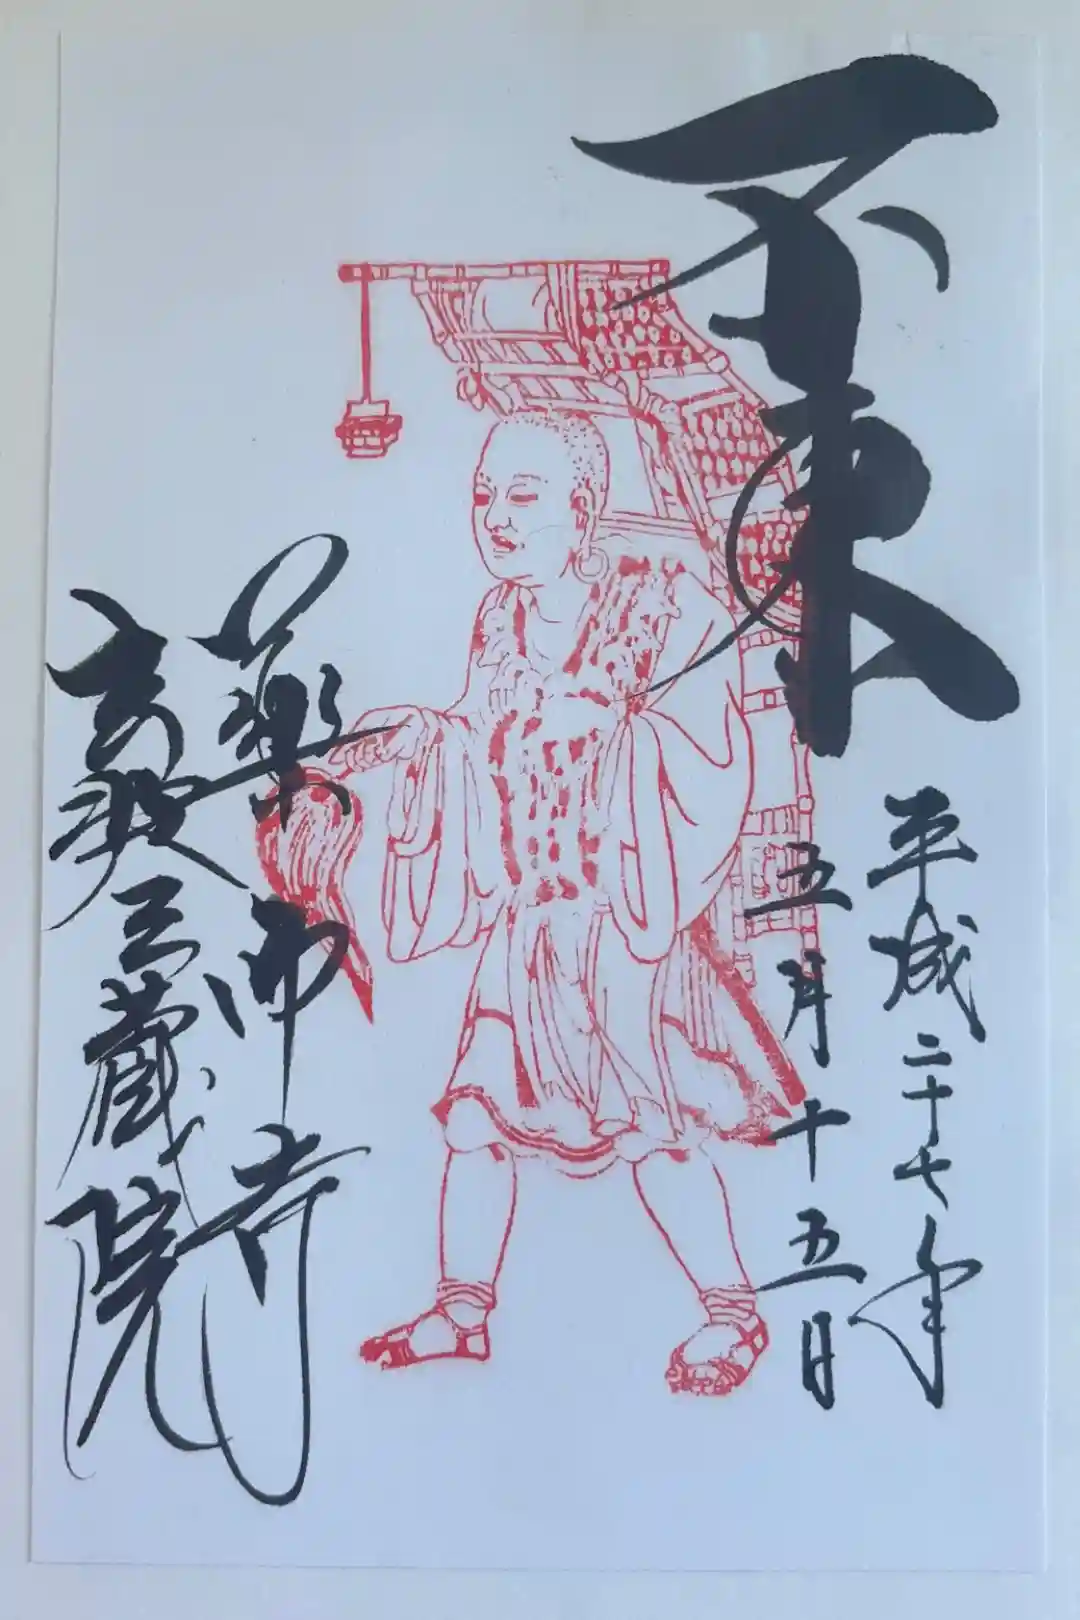 不東
平成二十七年
五月十五日
薬師寺
玄奘三蔵院